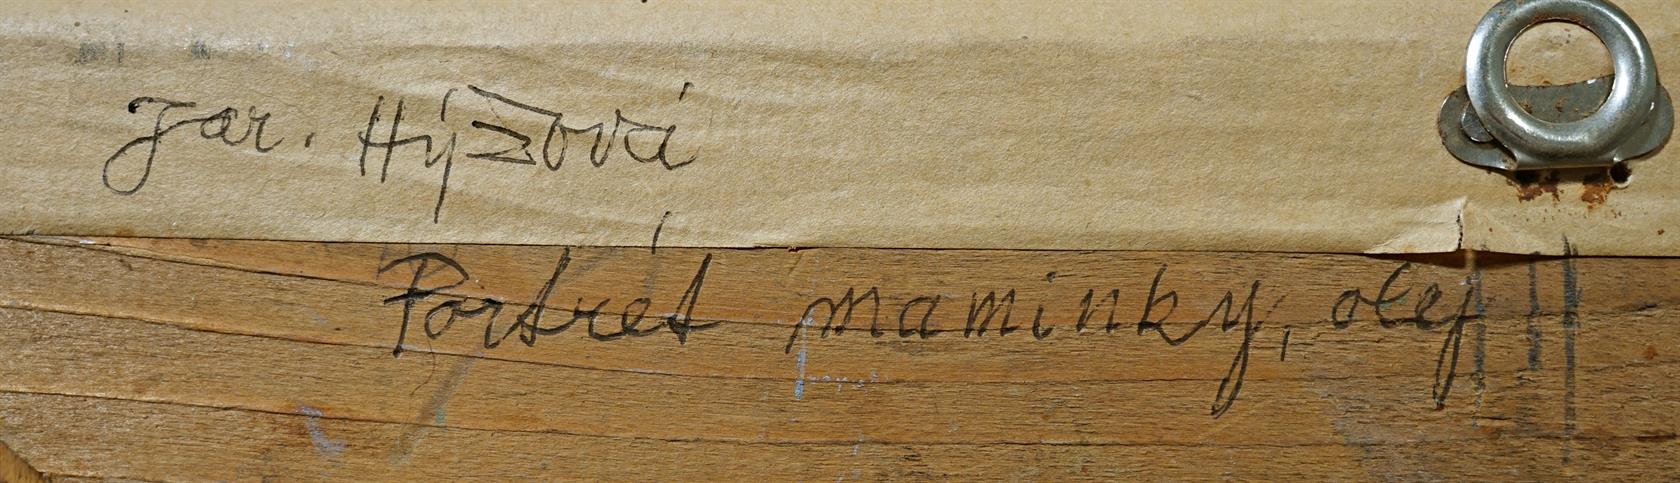 Jar. Hýžová
Portrét maminky, olej